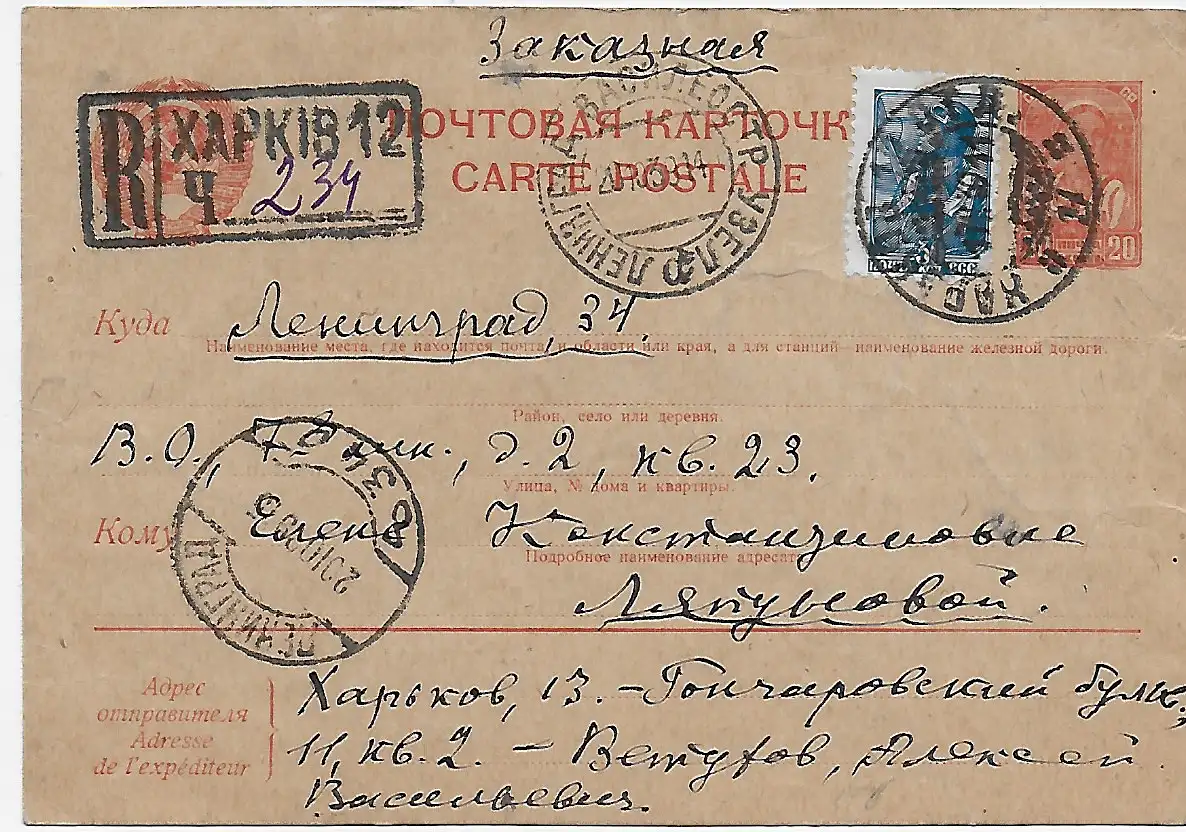 Заказная
R ХАРКІВ 12
Ч 234
ПОЧТОВАЯ КАРТОЧК
CARTE POSTALE
ЛЕНИНГРАД ВАСИЛЕОСТР. УЗЕЛ
ПОЧТА СССР
20
Куда Ленинград, 34,
Наименование места, где находится почта, и области или края, а для станций—наименование железной дороги.
Район, село или деревня.
В.О., 7я лин., д. 2, кв. 23.
Улица, № дома и квартиры.
Кому Елене Константиновне
Подробное наименование адресата
Ляпуновой.
ЛЕНИНГРАД
Адрес отправителя
Adresse de l'expéditeur
Харьков, 13. – Гончаровский бульв.,
11, кв. 2. – Ветухов, Алексей
Васильевич.